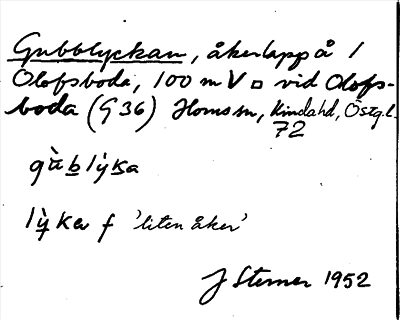 Gubblyckan, åkerlapp å 1
Olofsboda, 100 m V □ vid Olofs-
boda (G 36) Horns sn, Kinda hd, Östg.l.
72
gùb̠lỳk̠a
lỳ̠ka f 'liten åker'
J Sterner 1952